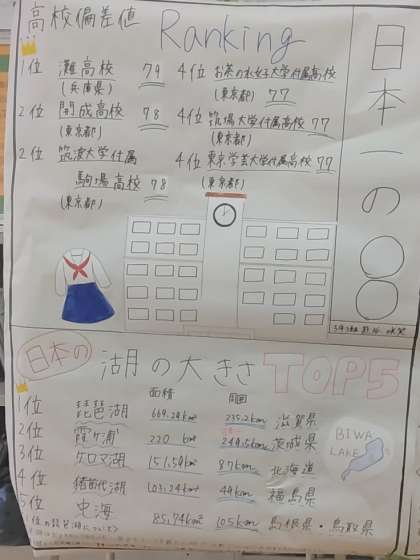 高校偏差値 Ranking
1位 灘高校 79
(兵庫県)
2位 開成高校 78
(東京都)
2位 筑波大学付属
駒場高校 78
(東京都)
4位 お茶の水女子大学付属高校
(東京都) 77
4位 筑波大学付属高校 77
(東京都)
4位 東京学芸大学付属高校 77
(東京都)
日本一の〇〇
日本の 湖の大きさ TOP5
面積 周囲
1位 琵琶湖 669.26km² 235.2km 滋賀県
2位 霞ヶ浦 220 km² 249.5km 茨城県
3位 サロマ湖 151.59km² 87km 北海道
4位 猪苗代湖 103.24km² 49km 福島県
5位 中海 85.74km² 105km 島根県・鳥取県
BIWA
LAKE